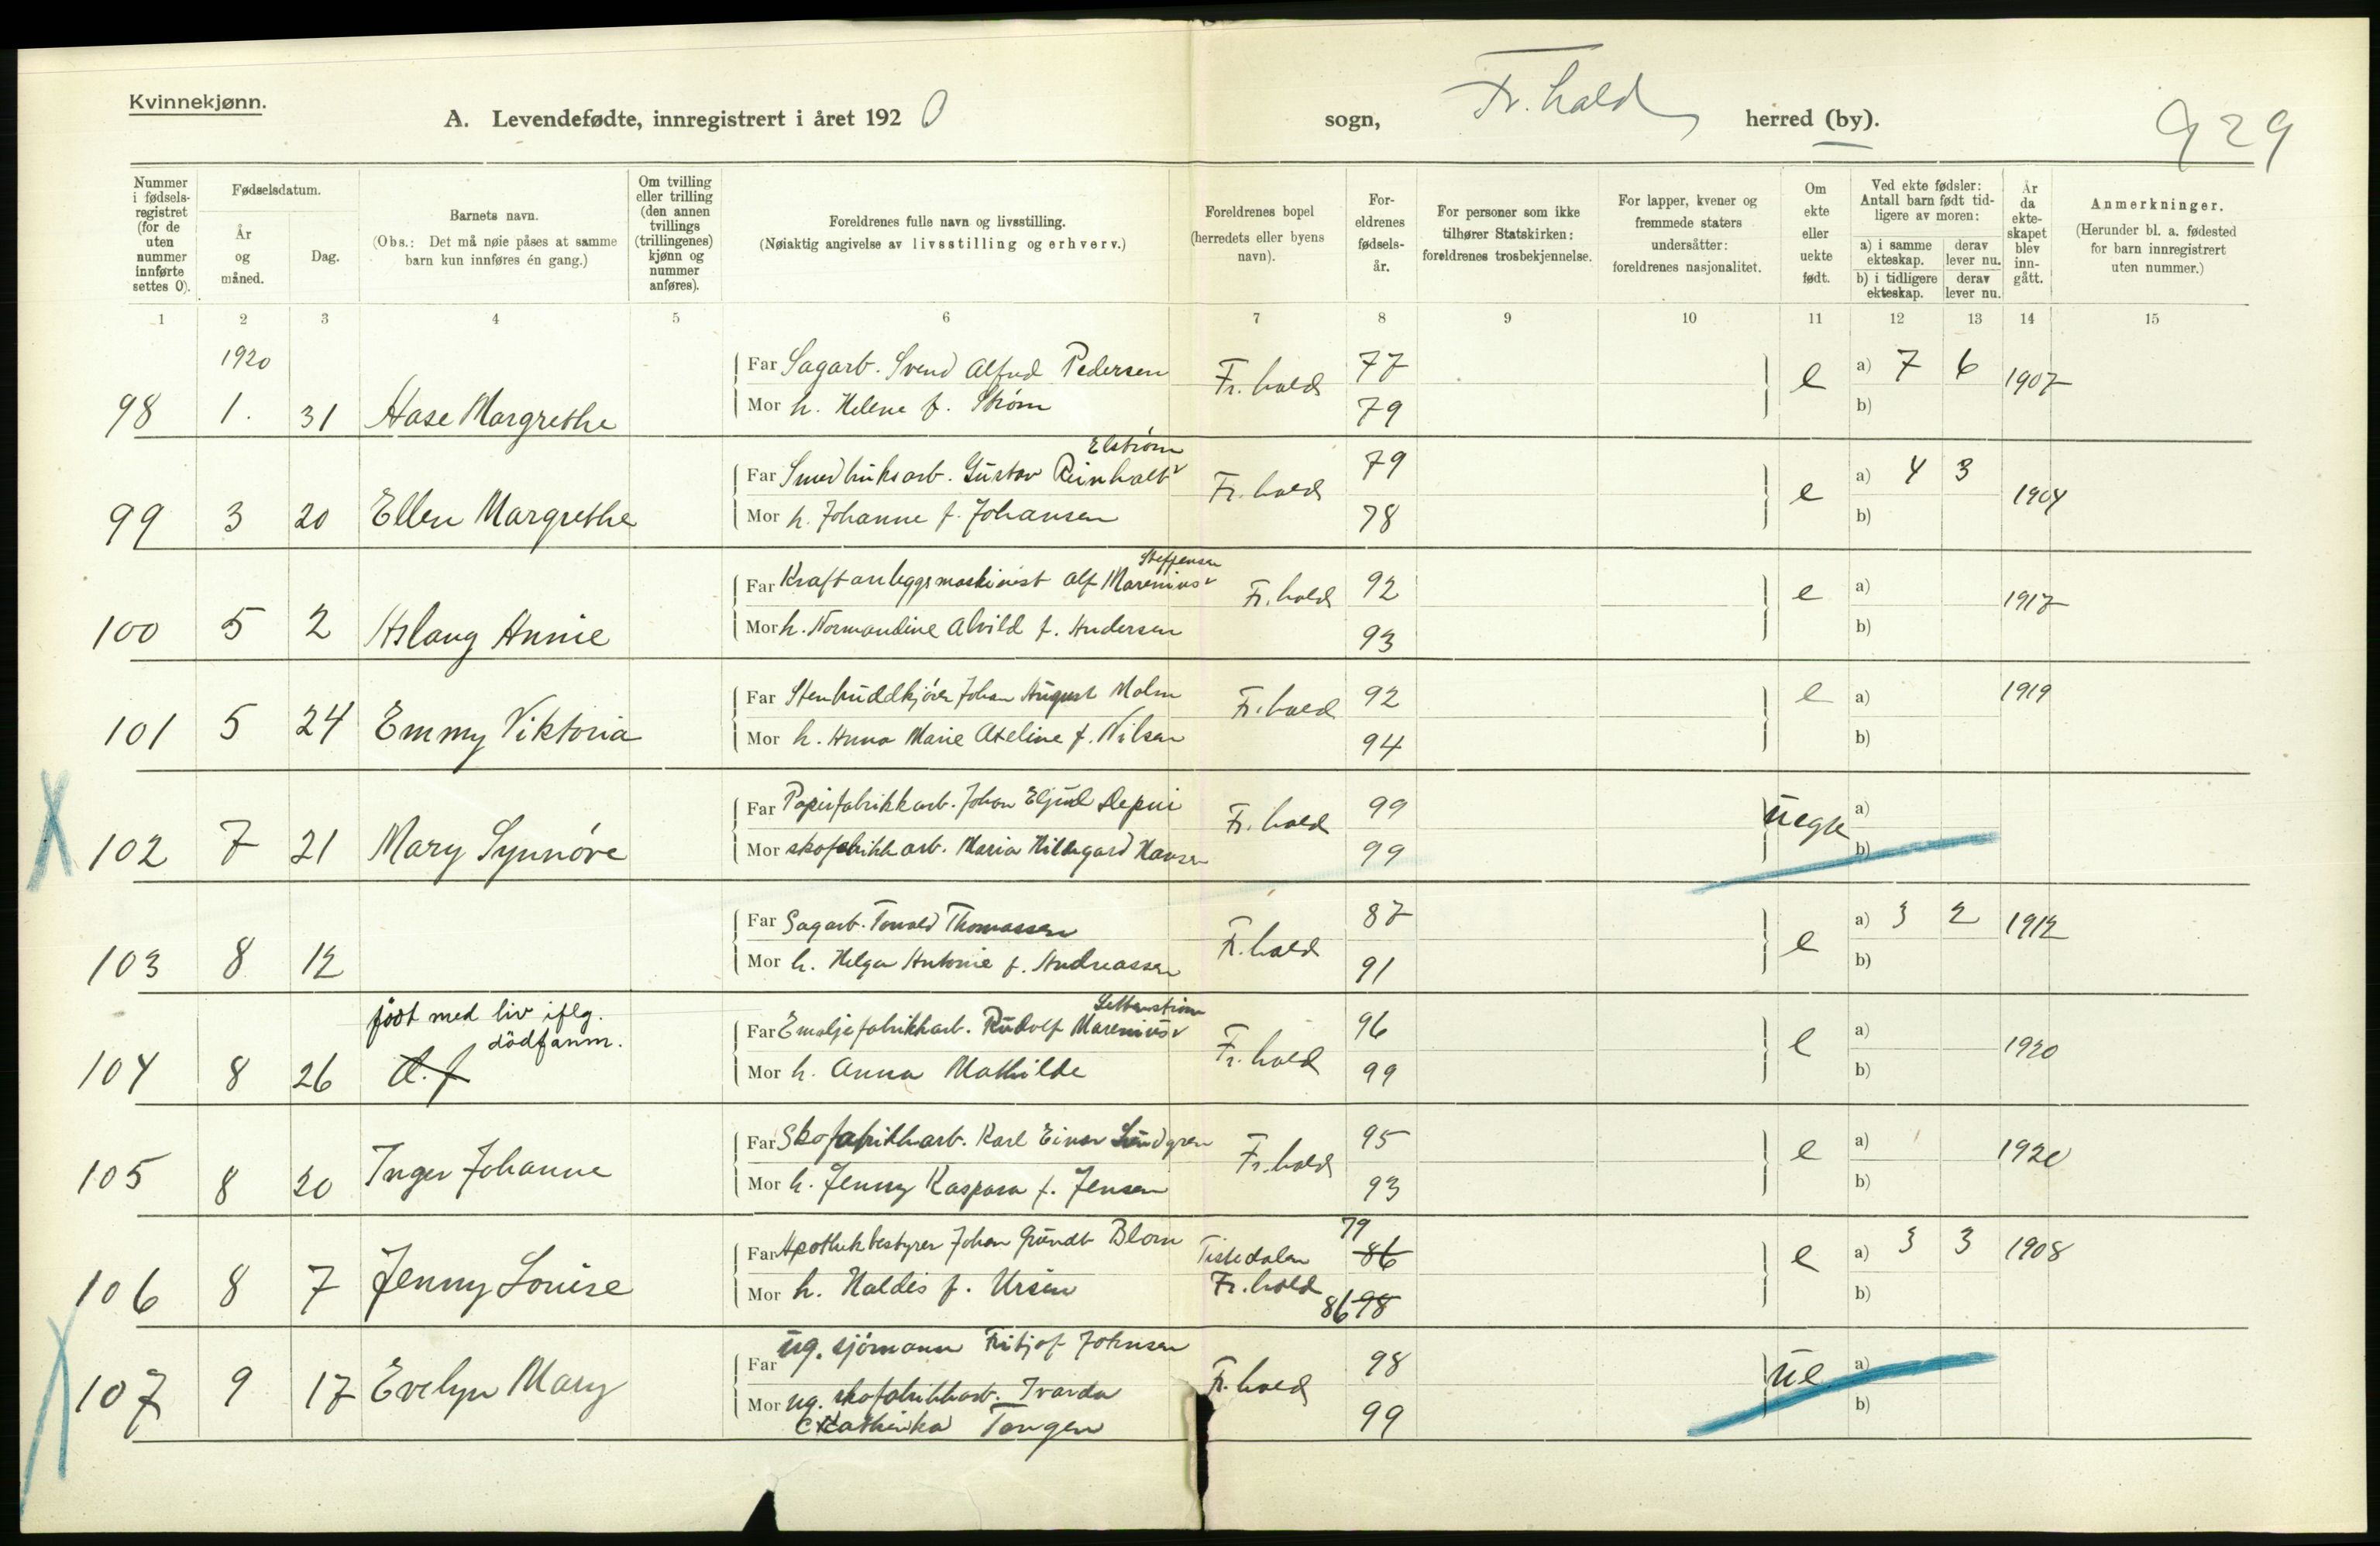 Kvinnekjønn.
A. Levendefødte, innregistrert i året 1920 sogn, Fr.hald herred (by).
929
Nummer i fødselsregistret (for de uten nummer innførte settes 0).
Fødselsdatum.
År og måned.
Dag.
Barnets navn.
(Obs.: Det må nøie påses at samme barn kun innføres én gang.)
Om tvilling eller trilling (den annen tvillings (trillingenes) kjønn og nummer anføres).
Foreldrenes fulle navn og livsstilling.
(Nøiaktig angivelse av livsstilling og erhverv.)
Foreldrenes bopel (herredets eller byens navn).
Foreldrenes fødselsår.
For personer som ikke tilhører Statskirken: foreldrenes trosbekjennelse.
For lapper, kvener og fremmede staters undersåtter: foreldrenes nasjonalitet.
Om ekte eller uekte født.
Ved ekte fødsler: Antall barn født tidligere av moren:
a) i samme ekteskap. derav lever nu.
b) i tidligere ekteskap. derav lever nu.
År da ekteskapet blev inngått.
Anmerkninger.
(Herunder bl. a. fødested for barn innregistrert uten nummer.)
1 2 3 4 5 6 7 8 9 10 11 12 13 14 15
1920
Far Sagarb. Svend Alfred Pedersen Fr.hald 77 e a) 7 6 1907
98 1. 31 Aase Margrethe Mor h. Helene f. Strøm 79 b)
Elstrøm
Far Smedbruksarb. Gustav Reinholt Fr.hald 79 e a) 4 3 1904
99 3 20 Ellen Margrethe Mor h. Johanne f. Johansen 78 b)
Steffensen
Far Kraftanleggsmaskinist Alf Marenius Fr.hald 92 e a) 1917
100 5 2 Aslaug Annie Mor h. Normandine Alvild f. Andersen 93 b)
Far Stenhuddkjører Johan August Malm Fr.hald 92 e a) 1919
101 5 24 Emmy Viktoria Mor h. Anna Marie Axeline f. Nilsen 94 b)
Far Papirfabrikkarb. Johan Fr.hald 99 uegte a)
102 7 21 Mary Synnøve Mor skofabrikkarb. Maria Hildegard Hansen 99 b)
Far Sagarb. Torvald Thomassen Fr.hald 87 e a) 3 2 1912
103 8 12 Mor h. Helga Antonie f. Andreassen 91 b)
født med liv iflg. dødfanm.
Far Emaljefabrikkarb. Rudolf Marenius Fr.hald 96 e a) 1920
104 8 26 d.f Mor h. Anna Mathilde 99 b)
Far Skofabrikkarb. Karl Einar Lundgren Fr.hald 95 e a) 1920
105 8 20 Inger Johanne Mor h. Jenny Kaspara f. Jensen 93 b)
Far Apothekbestyrer Johan Grundt Blom Tistedalen Fr.hald 79 86 e a) 3 3 1908
106 8 7 Jenny Louise Mor h. Haldis f. Ursin 86 98 b)
Far ug. sjømann Fritjof Johnsen Fr.hald 98 ue a)
107 9 17 Evelyn Mary Mor ug. skofabrikkarb. Ivarda 99 b)
Cathinka Tangen